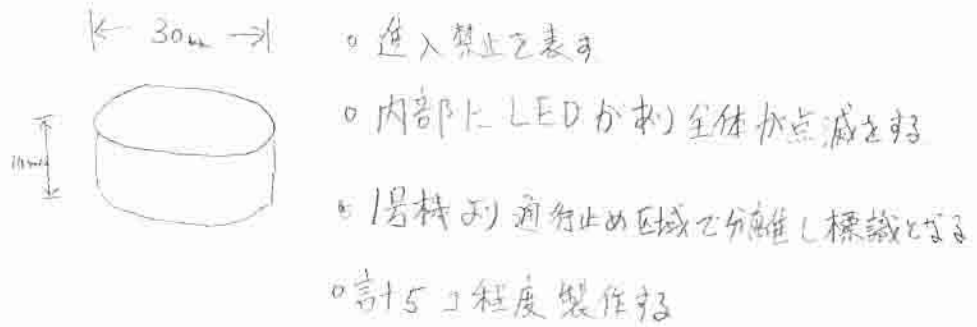 30mm
進入禁止を表す
内部にLEDがあり全体が点滅をする
1号機より通行止め区域で分離し標識となる
計5コ程度製作する